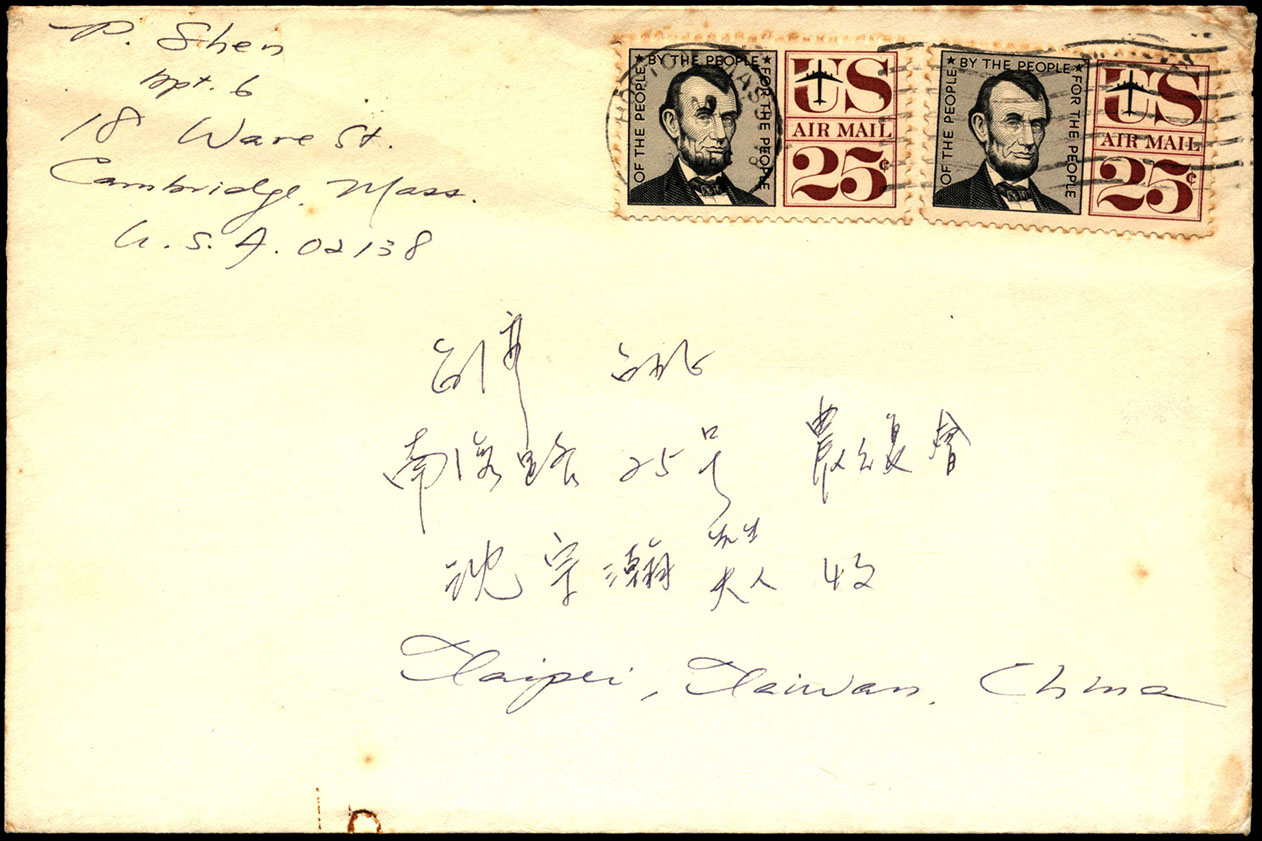 P. Shen
Apt. 6
18 Ware St.
Cambridge, Mass.
U.S.A. 02138
OF THE PEOPLE ★ BY THE PEOPLE ★ FOR THE PEOPLE
US
AIR MAIL
25¢
OF THE PEOPLE ★ BY THE PEOPLE ★ FOR THE PEOPLE
US
AIR MAIL
25¢
台灣 台北
南海路 25号 農復會
沈宗瀚 先生 夫人 收
Taipei, Taiwan, China